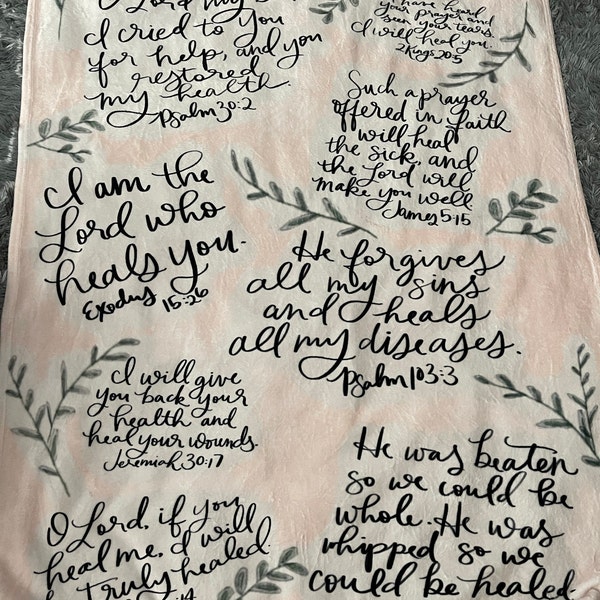 O Lord my
I cried to You
for help, and you
restored
my health.
Psalm 30:2
have heard
your prayer and
seen your tears.
I will heal you.
2 Kings 20:5
Such a prayer
offered in faith
will heal
the sick, and
the Lord will
make you well
James 5:15
I am the
Lord who
heals you.
Exodus 15:26
He forgives
all my sins
and heals
all my diseases.
Psalm 103:3
I will give
you back your
health and
heal your wounds.
Jeremiah 30:17
O Lord, if you
heal me, I will
truly healed
He was beaten
so we could be
whole. He was
whipped so we
could be healed.